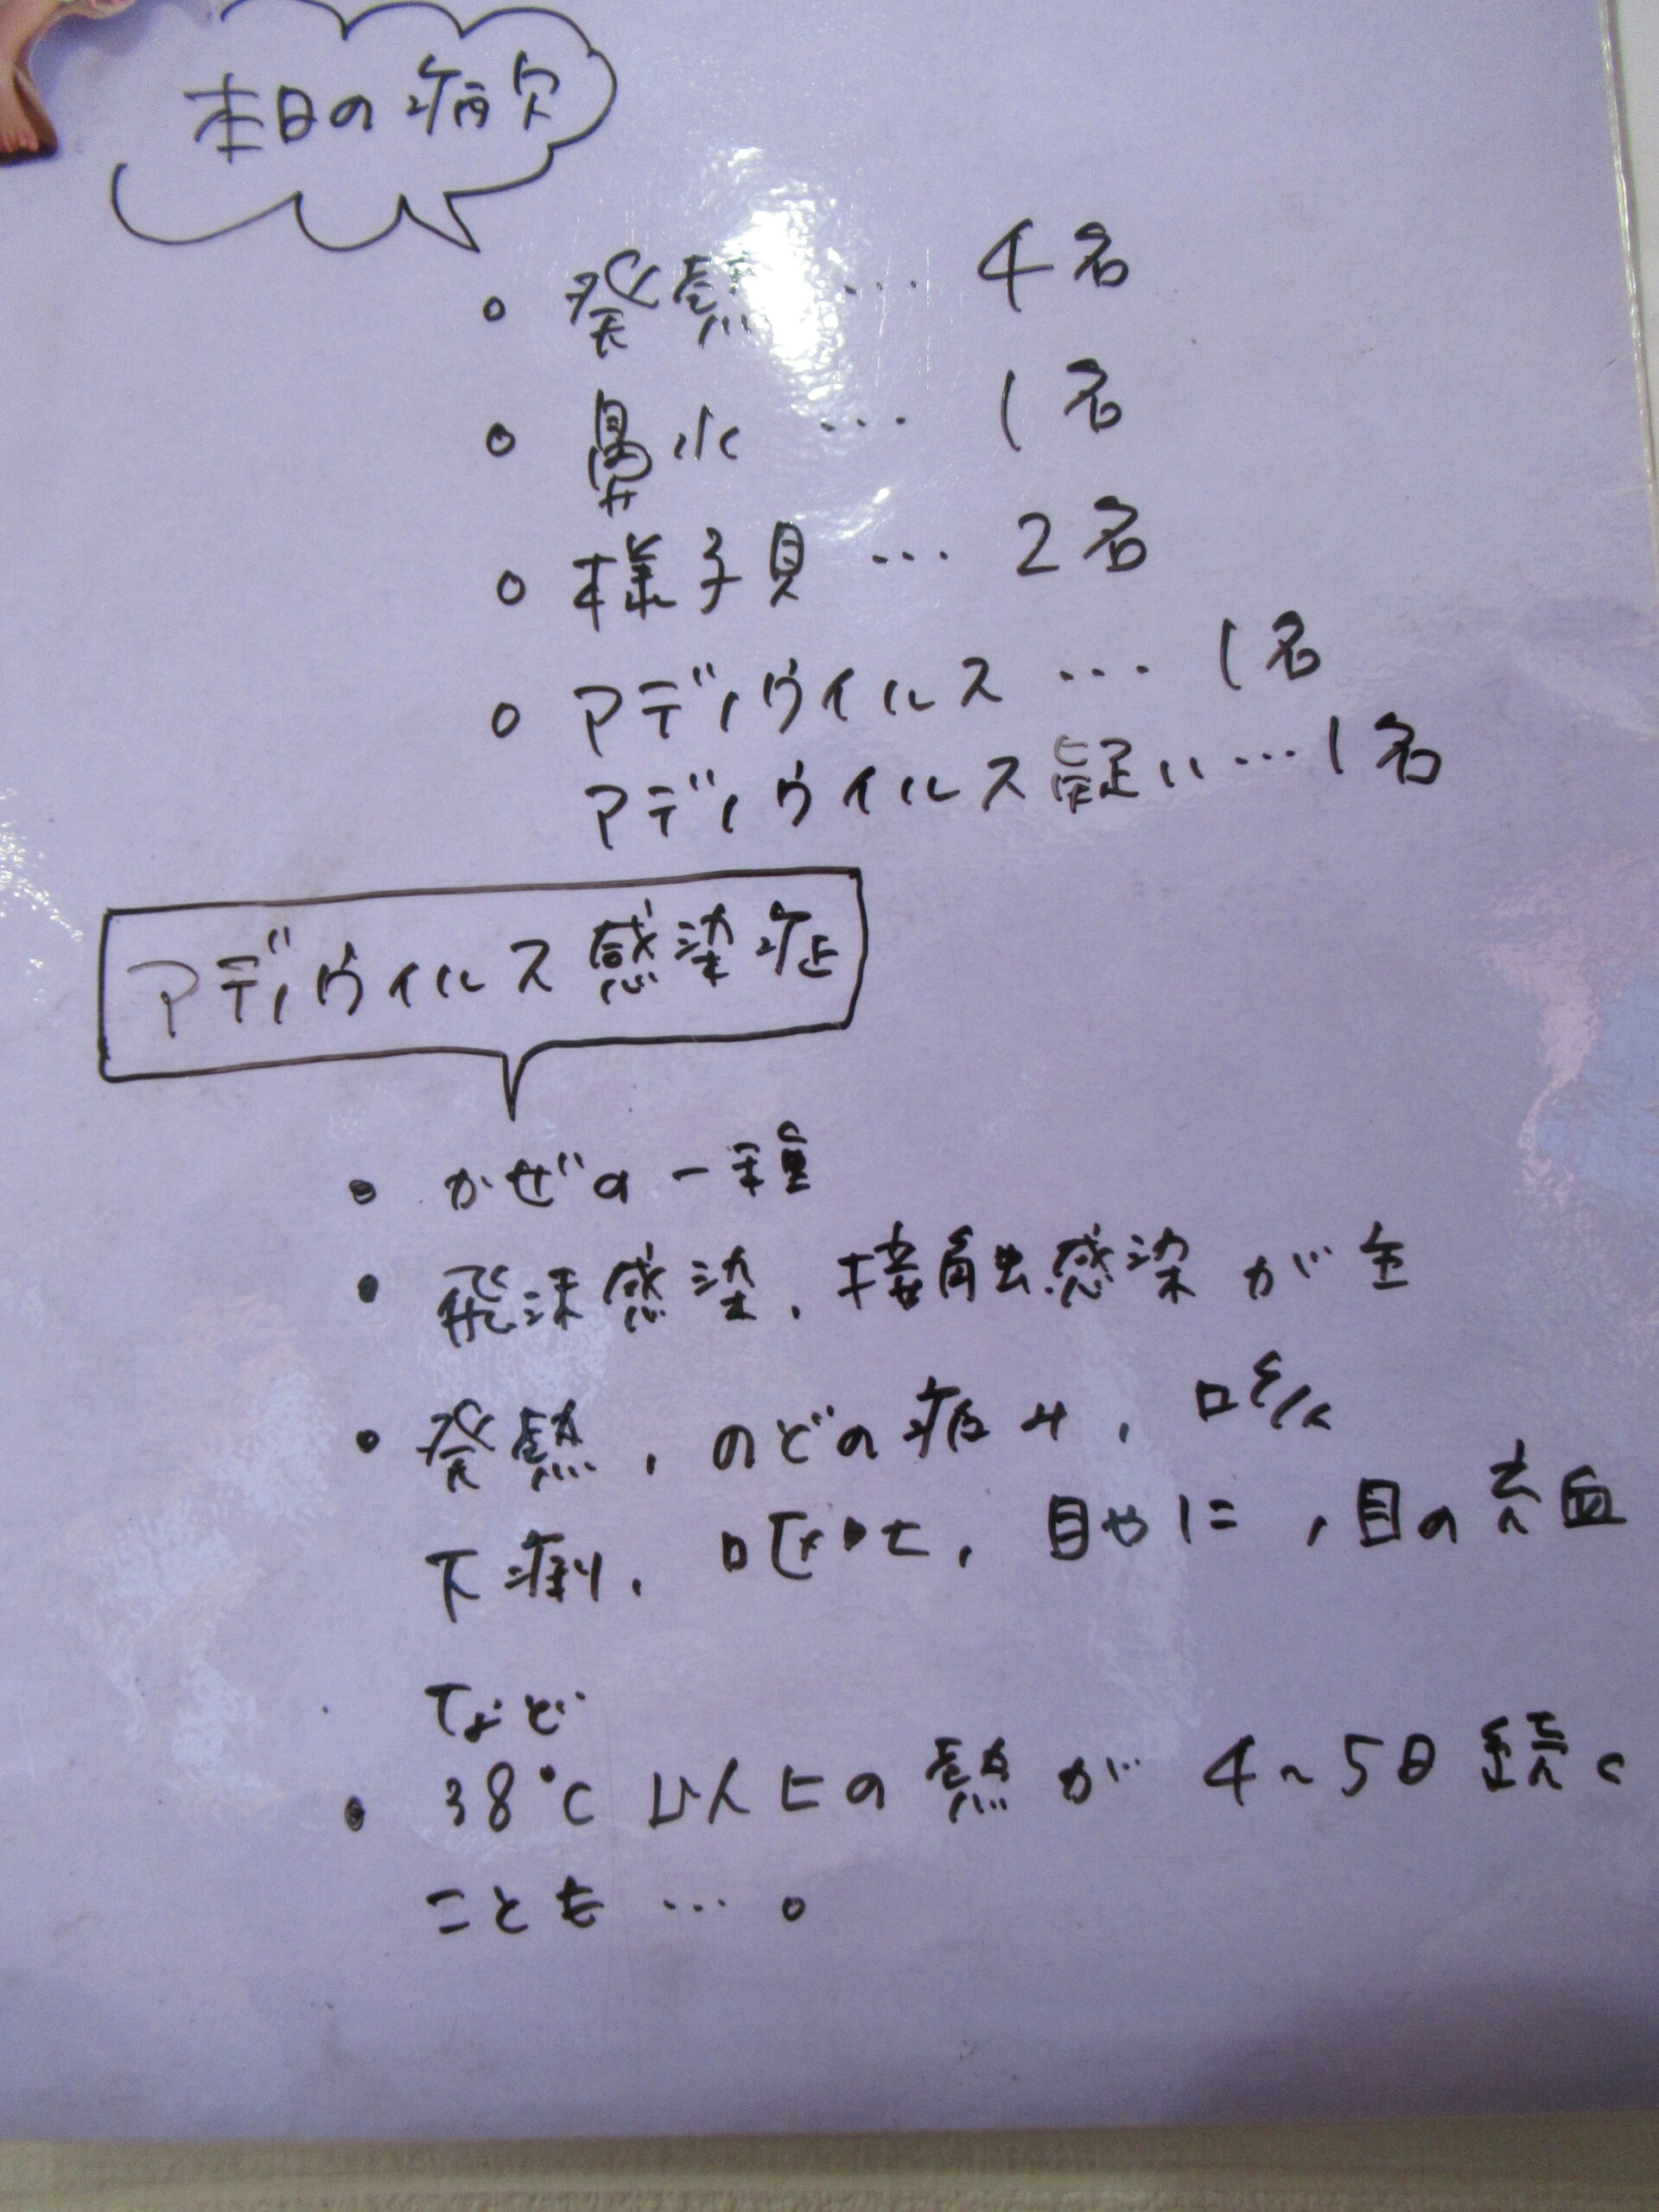 本日の病欠
○ 発熱 … 4名
○ 鼻水 … 1名
○ 様子見 … 2名
○ アデノウイルス … 1名
アデノウイルス疑い … 1名
アデノウイルス感染症
• かぜの一種
• 飛沫感染、接触感染が主
• 発熱、のどの痛み、咳
下痢、嘔吐、目やに、目の充血
など
• 38℃以上の熱が4~5日続く
ことも…。